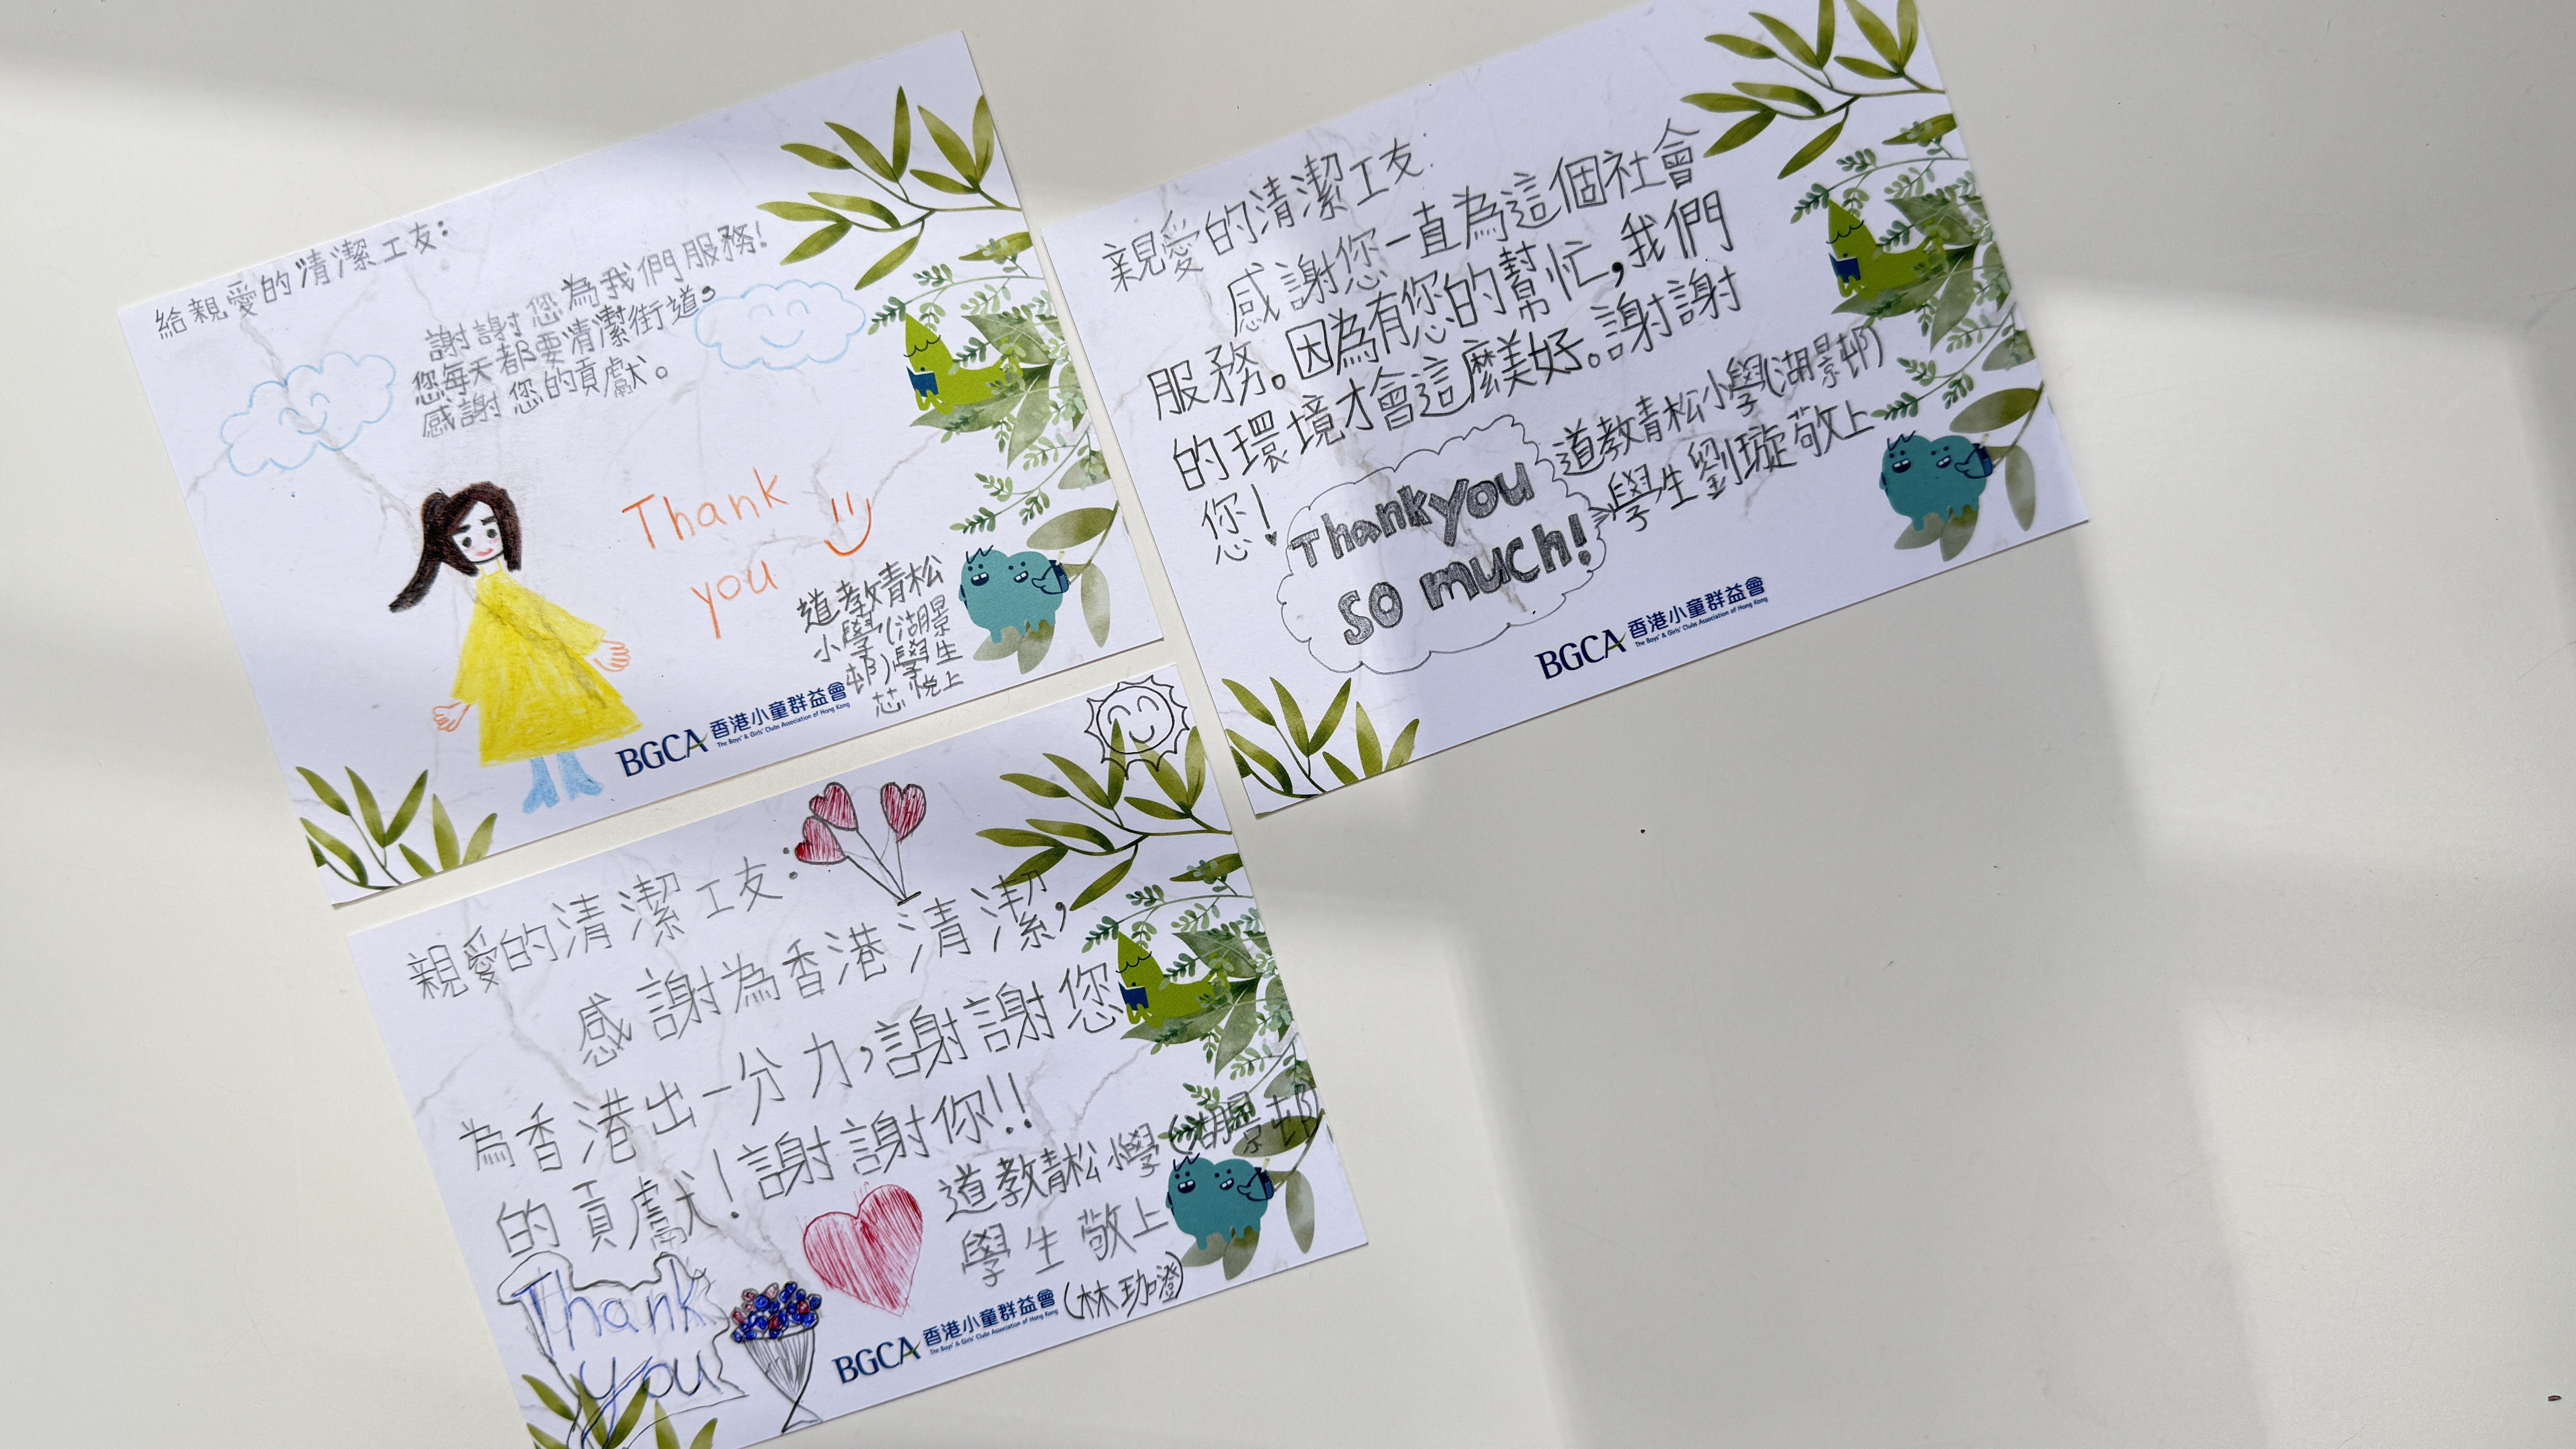 給親愛的清潔工友：
謝謝您為我們服務！
您每天都要清潔街道，
感謝您的貢獻。
Thank
you
道教青松
小學(湖景
邨)學生
芯悅上
BGCA 香港小童群益會
The Boys' & Girls' Clubs Association of Hong Kong
親愛的清潔工友:
感謝您一直為這個社會
服務。因為有您的幫忙,我們
的環境才會這麼美好。謝謝
您!
道教青松小學(湖景邨)
學生劉璇敬上
Thankyou
so much!
BGCA 香港小童群益會
The Boys' & Girls' Clubs Association of Hong Kong
親愛的清潔工友：
感謝為香港清潔，
為香港出一分力，謝謝您
的貢獻！謝謝你!!
道教青松小學(湖景邨)
學生敬上
(林珈澄)
Thank
you
BGCA 香港小童群益會
The Boys' & Girls' Clubs Association of Hong Kong